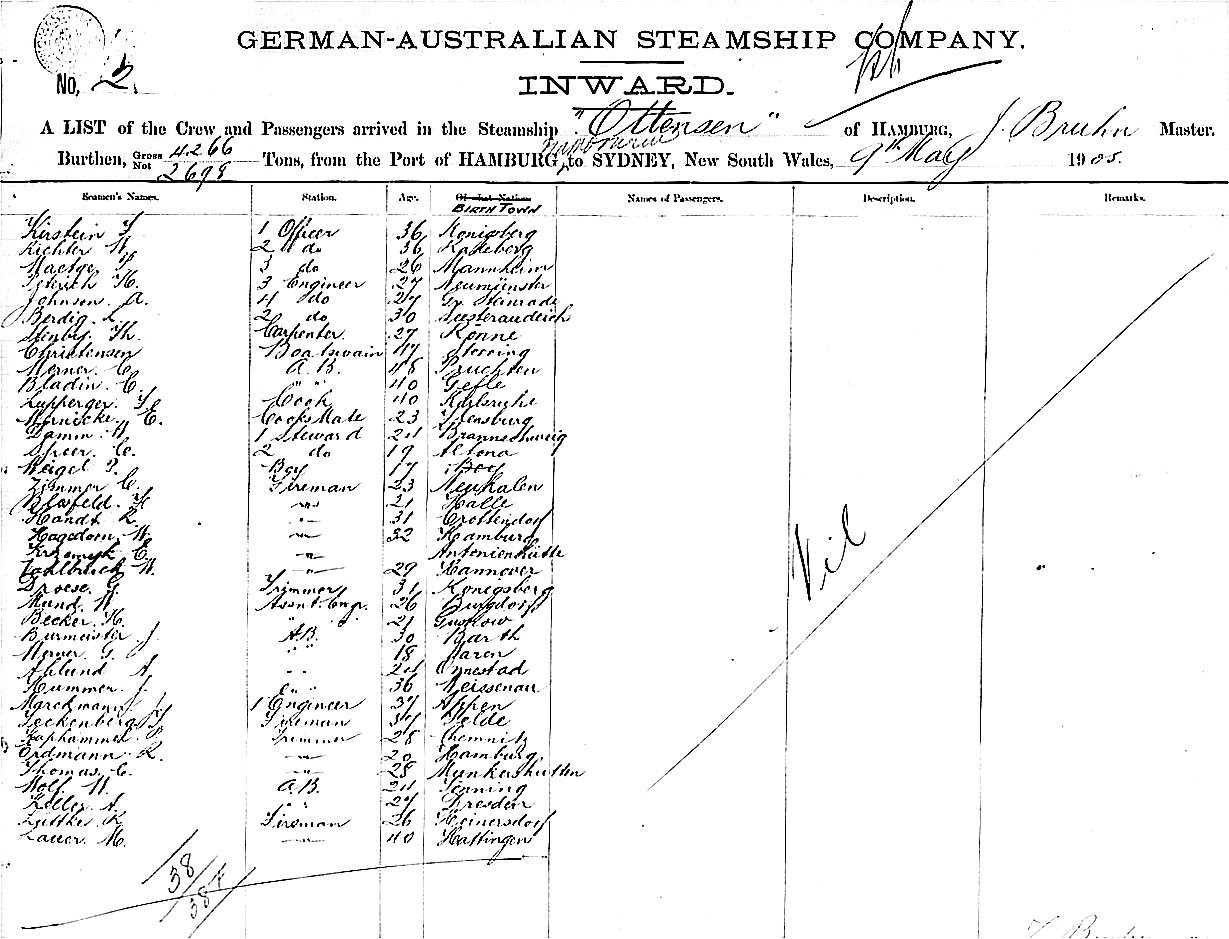 GERMAN-AUSTRALIAN STEAMSHIP COMPANY.
No, 2
INWARD.
A LIST of the Crew and Passengers arrived in the Steamship "Ottensen" of HAMBURG, J. Bruhn Master.
Burthen, Gross 4266 Net 2698 Tons, from the Port of HAMBURG, Melbourne to SYDNEY, New South Wales, 9th May 1905.
Seamen's Names. Station. Age. Of what Nation. BIRTH TOWN Names of Passengers. Description. Remarks.
Kirstein F. 1 Officer 36 Konigberg
Richter W. 2 do 36 Radeberg
3 do 26 Mannheim
H. 3 Engineer 27 Neumünster
Johnson A. 4 do 27 Gr. Steinrade
Berdig 2 do 30
Stenby Th. Carpenter 27 Rönne
Christensen Boatswain 47
Werner C. A.B. 48 Pruchten
Bladin C. " " 40 Gefle
Cook 40 Karlsruhe
E. Cooks Mate 23 Flensburg
Damm W. 1 Steward 24 Braunschweig
Speer C. 2 do 19 Altona
Weigel P. Boy 17
Zimmer C. Fireman 23 Neukalen
Blasfeld F. " 21 Halle
Handt R. " 31 Crottendorf
Hagedorn W. " 32 Hamburg
C. " Antonienhütte
Vahlbruch W. " 29 Hannover
Droese G. Trimmer 31 Königsberg
Mund W. Assnt. Engr. 26 Burgdorf
Becker H. " 21 Gustrow
Burmeister J. A.B. 30 Barth
Werner G. " " 18 Waren
Ahlund A. " " 24
Hummer J. " " 36 Weissenau
Marckmann 1 Engineer 37 Appen
Teckenberg Fireman 37 Velde
Kaphammel P. Trimmer 28 Chemnitz
Erdmann R. " 20 Hamburg
Thomas C. " 28
Wolf W. A.B. 24 Tönning
Zeller A. " " 27 Dresden
Lüttke R. Fireman 26 Heinersdorf
Lauer M. " 40 Hattingen
Nil
38
38